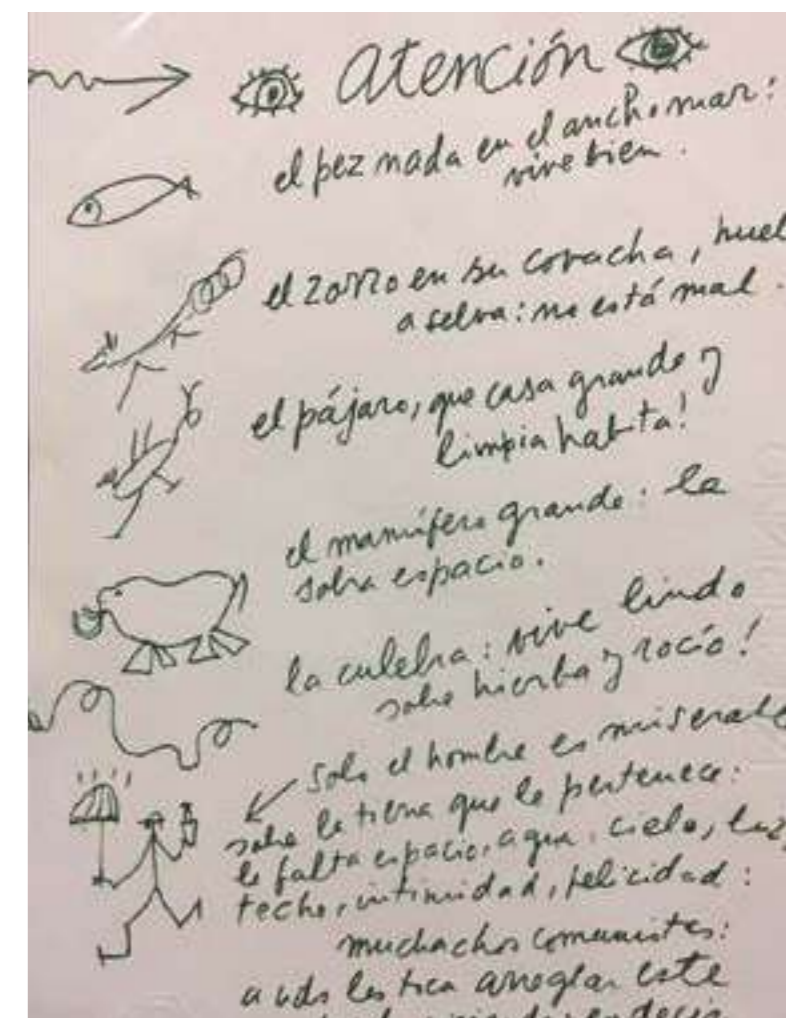 atención
el pez nada en el ancho mar:
vive bien.
el zorro en su covacha, huel
a selva: no está mal.
el pájaro, que casa grande y
limpia habita!
el mamífero grande: le
sobra espacio.
la culebra: vive lindo
sobre hierba y rocío!
solo el hombre es miserable
sobre la tierra que le pertenece:
le falta espacio, agua, cielo, luz,
techo, intimidad, felicidad:
muchachos comunistas:
a uds les toca arreglar este